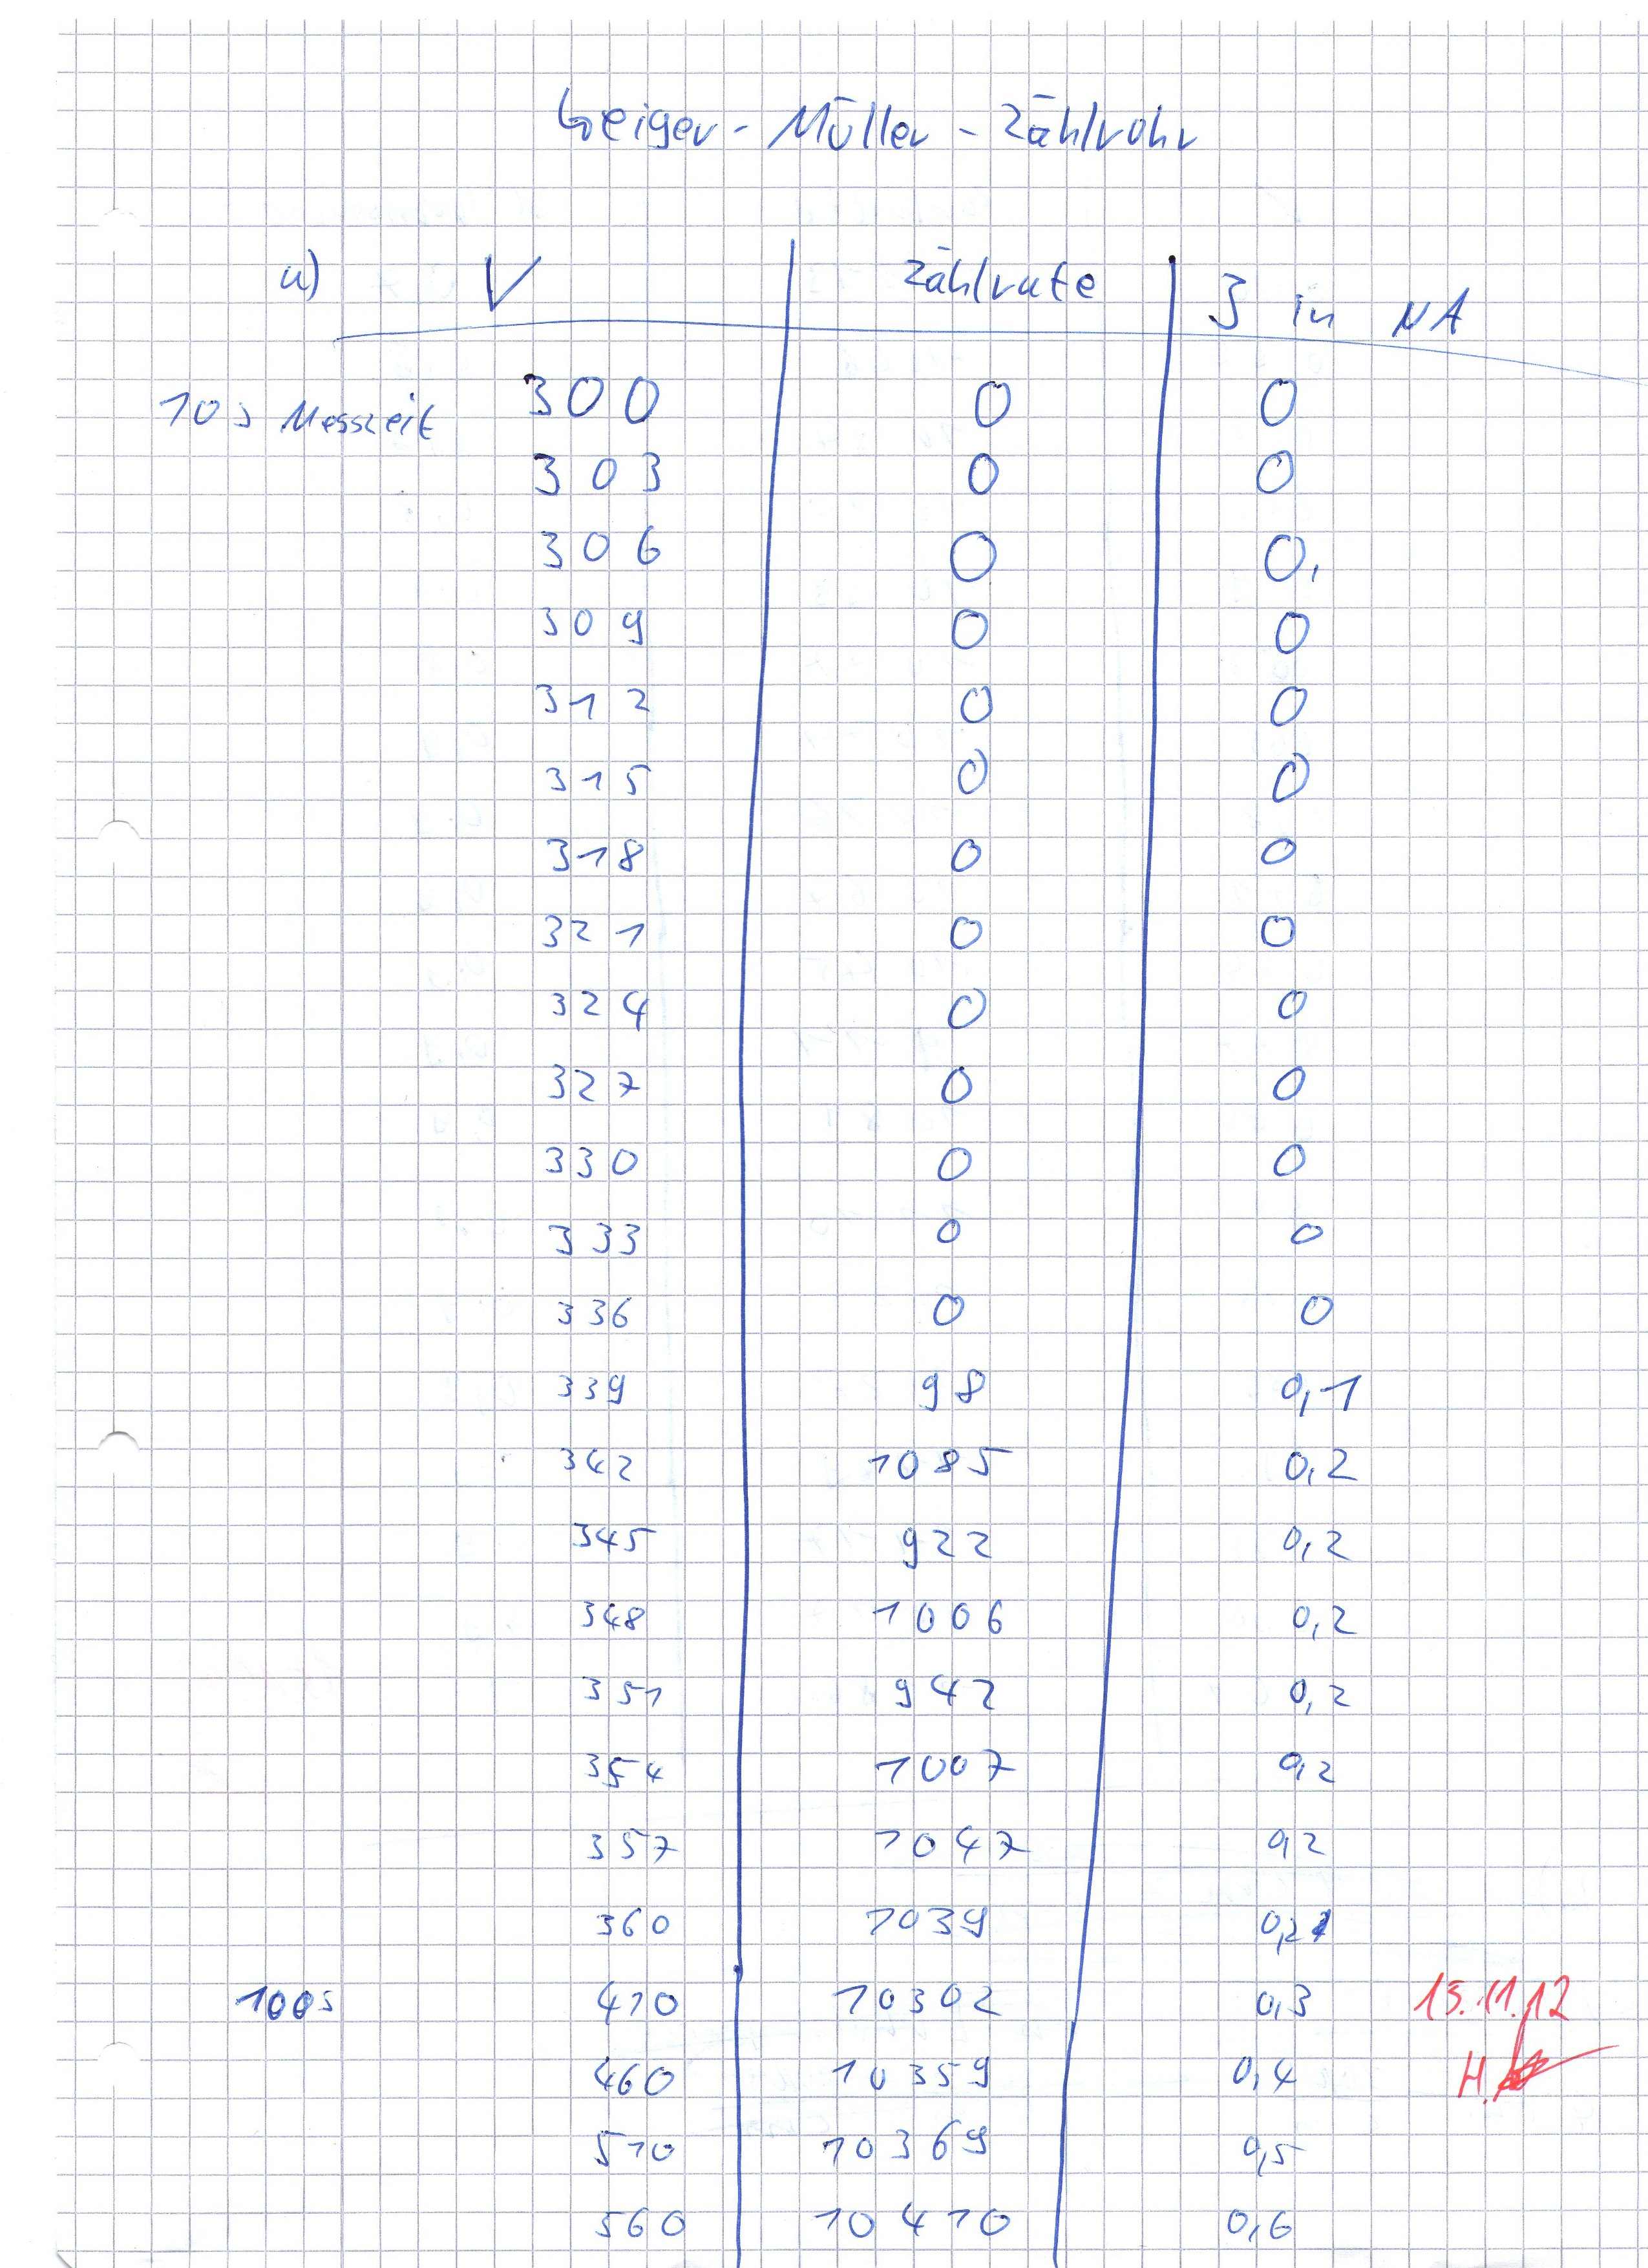 Geiger-Müller-Zählrohr
a) V Zählrate I in μA
10s Messzeit 300 0 0
303 0 0
306 0 0,
309 0 0
312 0 0
315 0 0
318 0 0
321 0 0
324 0 0
327 0 0
330 0 0
333 0 0
336 0 0
339 98 0,1
342 1085 0,2
345 922 0,2
348 1006 0,2
351 942 0,2
354 1007 0,2
357 1047 0,2
360 1039 0,2
100s 410 10302 0,3 15.11.12
460 10359 0,4 H.
510 10369 0,5
560 10410 0,6